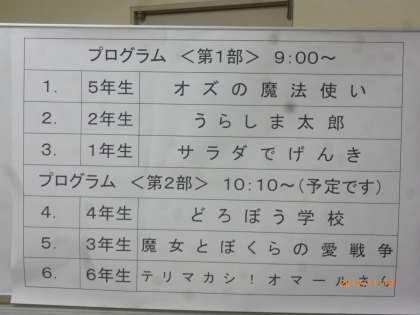 プログラム <第1部> 9:00～
1. 5年生 オズの魔法使い
2. 2年生 うらしま太郎
3. 1年生 サラダでげんき
プログラム <第2部> 10:10～(予定です)
4. 4年生 どろぼう学校
5. 3年生 魔女とぼくらの愛戦争
6. 6年生 テリマカシ!オマールさん